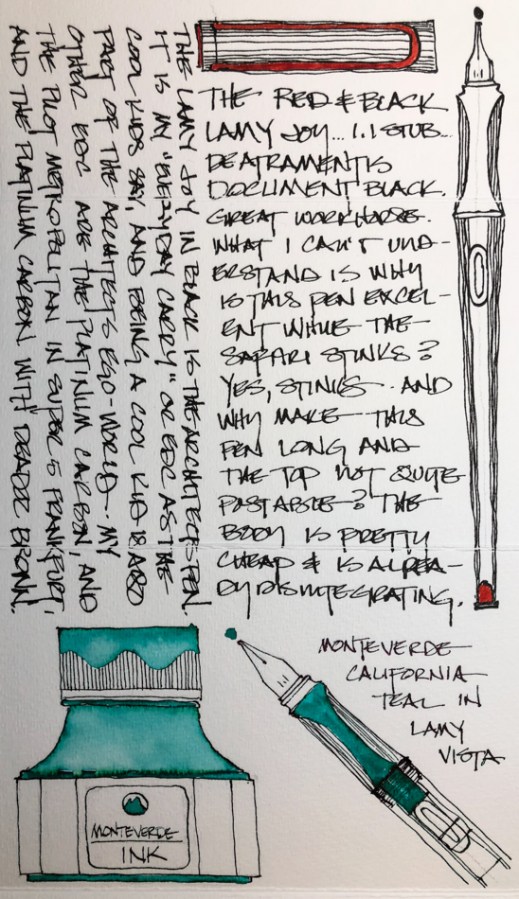 THE RED & BLACK
LAMY JOY... 1.1 STUB...
DEATRAMENTIS
DOCUMENT BLACK.
GREAT WORKHORSE.
WHAT I CAN'T UND-
ERSTAND IS WHY
IS THIS PEN EXCEL-
ENT WHILE THE
SAFARI STINKS?
YES, STINKS.. AND
WHY MAKE THIS
PEN LONG AND
THE TOP NOT QUITE
POSTABLE? THE
BODY IS PRETTY
CHEAP & IS ALREA-
DY DISINTEGRATING.
THE LAMY JOY IN BLACK IS THE ARCHITECTS PEN.
IT IS IN "EVERYDAY CARRY" OR EDC AS THE
COOL KIDS SAY, AND BEING A COOL KID IS ALSO
PART OF THE ARCHITECT'S EGO-WORLD... MY
OTHER EDC ARE THE PLATINUM CARBON, AND
THE PILOT METROPOLITAN IN SUPER 5 FRANKFURT,
AND THE PLATINUM CARBON WITH DEADOC BROWN.
MONTEVERDE
CALIFORNIA
TEAL IN
LAMY
VISTA
MONTEVERDE
INK